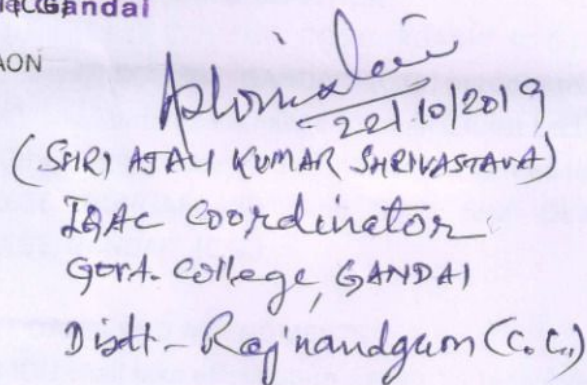 Gandai
AON
22/10/2019
(SHRI AJAY KUMAR SHRIVASTAVA)
IQAC Coordinator
Govt. College, GANDAI
Distt- Rajnandgaon (C.G.)